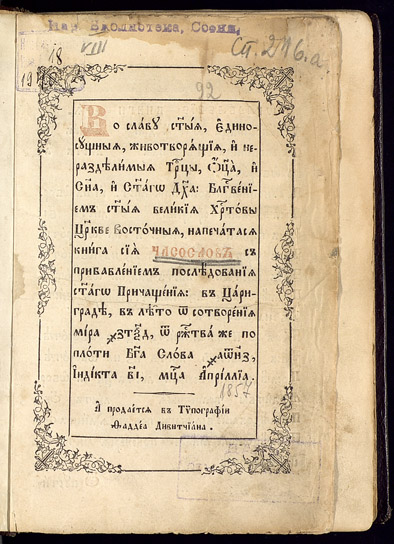 Нар. Библиотека, София,
Ст. 246.а
VIII
18
92
Во славу ст҃ыѧ, Є҆дино-
сꙋ́щныѧ, животворѧ́щїѧ, и҆ не-
раздѣли́мыѧ Трⷪ҇цы, Ѻ҆ц҃а̀, и҆
Сн҃а, и҆ Ст҃а́гѡ Дх҃а: Блгⷭ҇ве́нї-
емъ ст҃ы́ѧ вели́кїѧ Хрⷭ҇то́вы
Цр҃кве Восто́чныѧ, напеча́тасѧ
кни́га сїѧ̀ ЧАСОСЛОВЪ съ
прибавле́нїемъ послѣ́дованїѧ
ст҃а́гѡ Причаще́нїѧ: въ Цари-
гра́дѣ, въ лѣ́то ѿ сотворе́нїѧ
мі́ра ҂зтѯд, ѿ ржⷭ҇тва̀ же по
пло́ти Бг҃а Сло́ва ҂аѡнз,
І҆ндї́кта вı҃, мцⷭ҇а А҆прі́ллїа.
1857
А҆ продае́тсѧ въ Тѷпогра́фїи
Ѳадде́а Дивитчїѧ́на.